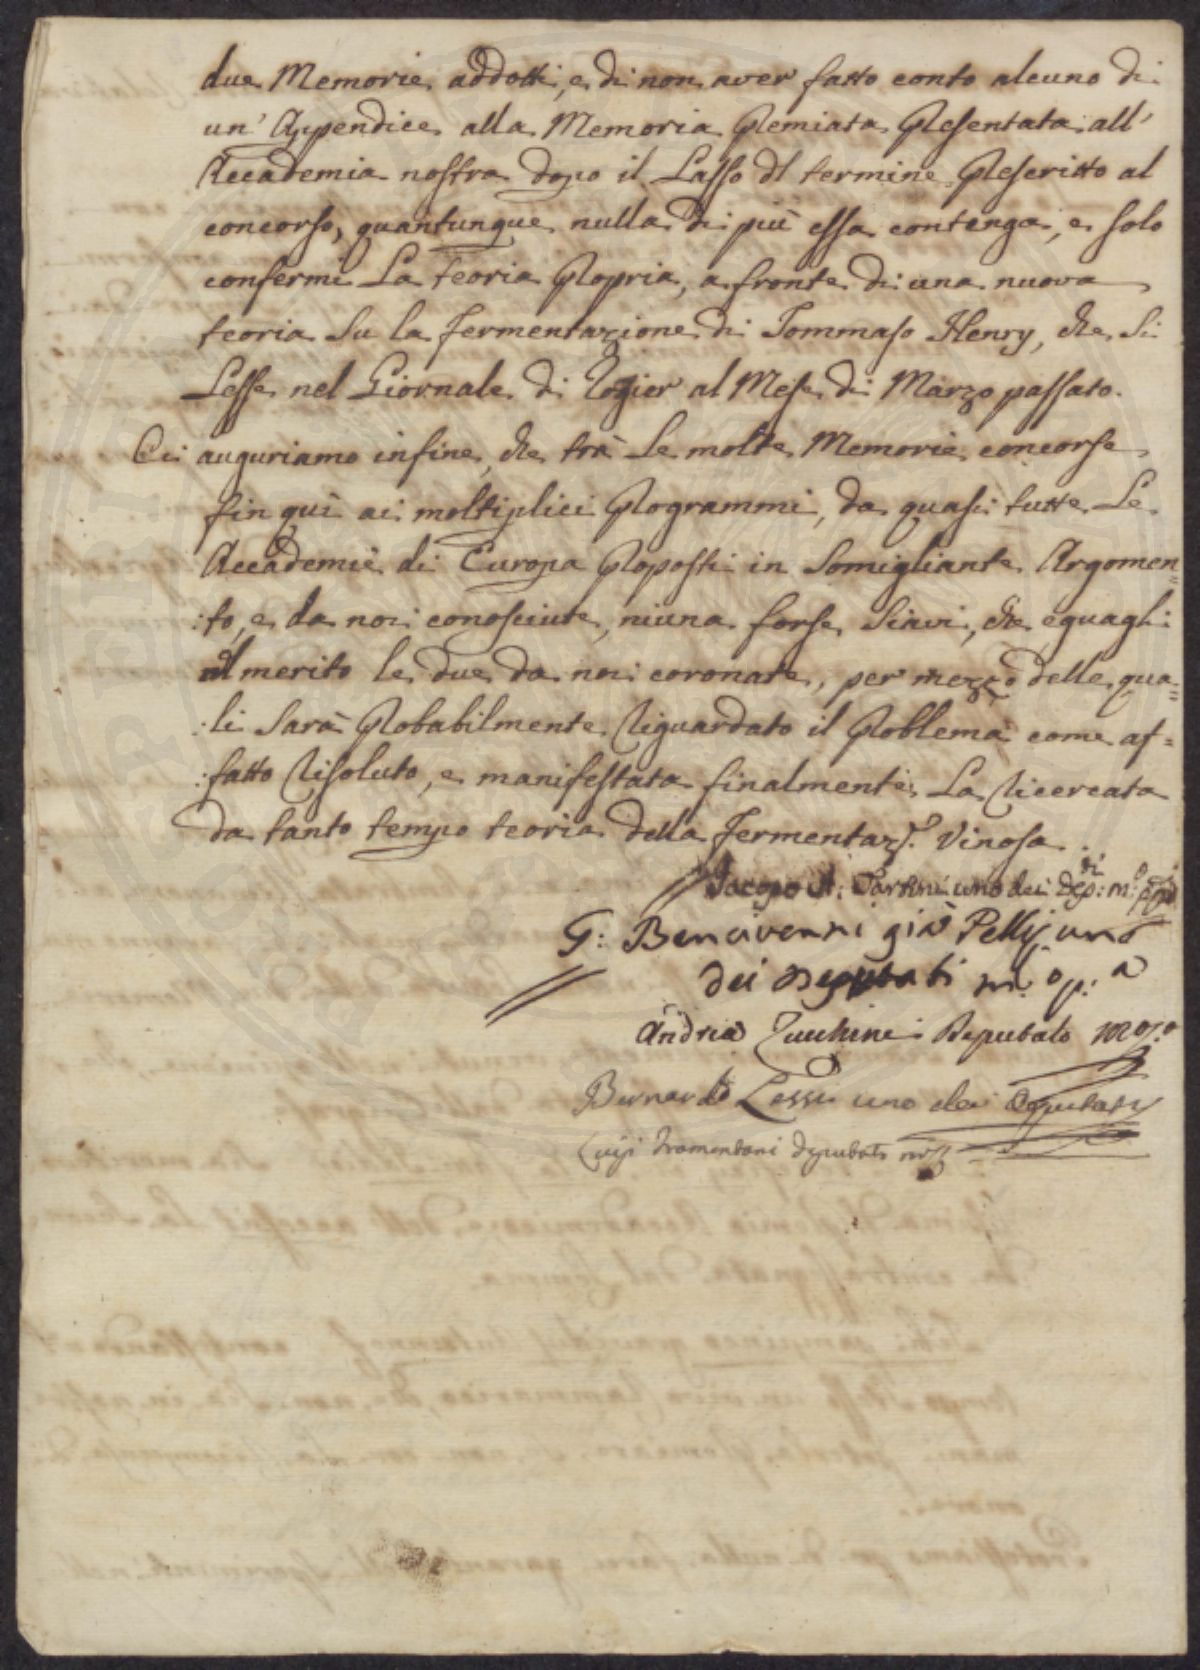 due Memorie addotti, e di non aver fatto conto alcuno di
un' Appendice alla Memoria Premiata Presentata all'
Accademia nostra dopo il Lasso dl termine Prescritto al
concorso, quantunque nulla di più essa contenga, e solo
confermi La teoria Propria, a fronte di una nuova
teoria Su la fermentazione di Tommaso Henry, che Si
Lesse nel Giornale di Rozier al Mese di Marzo passato.
Ci auguriamo infine, che trà Le molte Memorie concorse
fin quì ai moltiplici Programmi, da quasi tutte Le
Accademie di Europa Proposti in Somigliante Argomen=
:to, e da noi conosciute, niuna forse Siavi, che eguagli
il merito le due da noi coronate, per mezzo delle qua=
:li Sarà Probabilmente Riguardato il Problema come af=
:fatto Risoluto, e manifestata finalmente La Ricercata
da tanto tempo teoria della fermentaz.e Vinosa.
Jacopo A: Tartini uno dei Dep:ti m:o
G: Bencivenni già Pelli uno
dei Deputati m:o p:a
Andrea Zucchini Deputato mo po
Bernardo Lessi uno dei Deputati
Luigi Tramontani Deputato